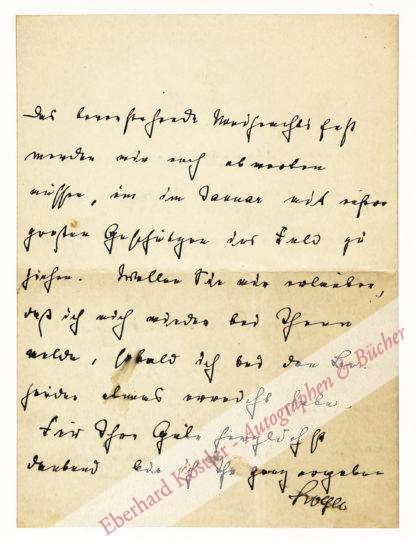 Das bevorstehende Weihnachtsfest
werden wir noch abwarten
müssen, um im Januar mit
großen Geschützen ins Feld zu
ziehen. Wollen Sie mir erlauben,
daß ich mich wieder bei Ihnen
melde, sobald ich bei den
erreicht habe.
Für Ihre Güte herzlichst
dankend bin ich Ihr ganz ergeben
Eberhard Köstler - Autographen & Bücher